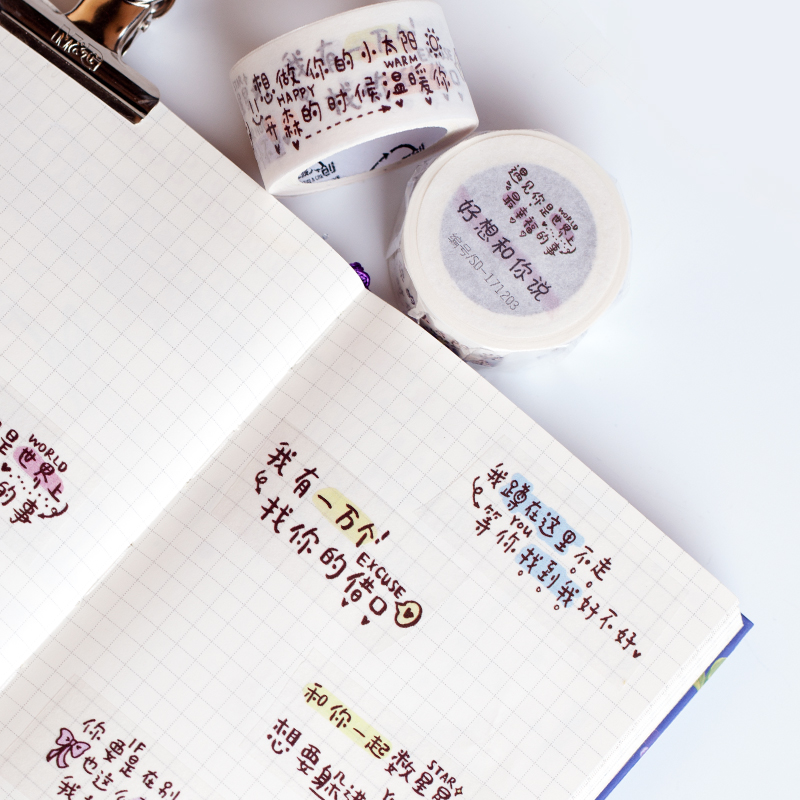 M&G
想做你的小太阳
WARM
HAPPY
的时候温暖你
遇见你是世界上
WORLD
最幸福的事
好想和你说
编号/SD-171203
是世界上
WORLD
的事
我有一万个!
找你的借口
EXCUSE
我蹲在这里不走
YOU
等你找到我好不好
和你一起数星星
STAR
想要躲进
你
IF
要是在别
也这么
我